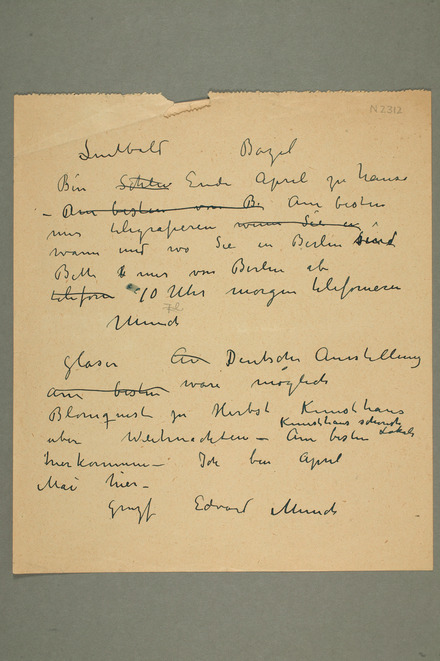 N 2312
Bazel
Bin Ende April zu hause
– Am besten von B. Am besten
mir telegrafieren wann Sie in
wann und wo Sie in Berlin sind
Bitte mir von Berlin ab
telefon 10 Uhr morgen telefonieren
Munch
Glaser An Deutsche Ausstellung
am besten ware möglich
Blomquest zu Herbst Kunsthaus
Kunsthaus
uber Weihnachten – Am besten Lokale
hierkommen – Ich bin April
Mai hier –
Edvard Munch